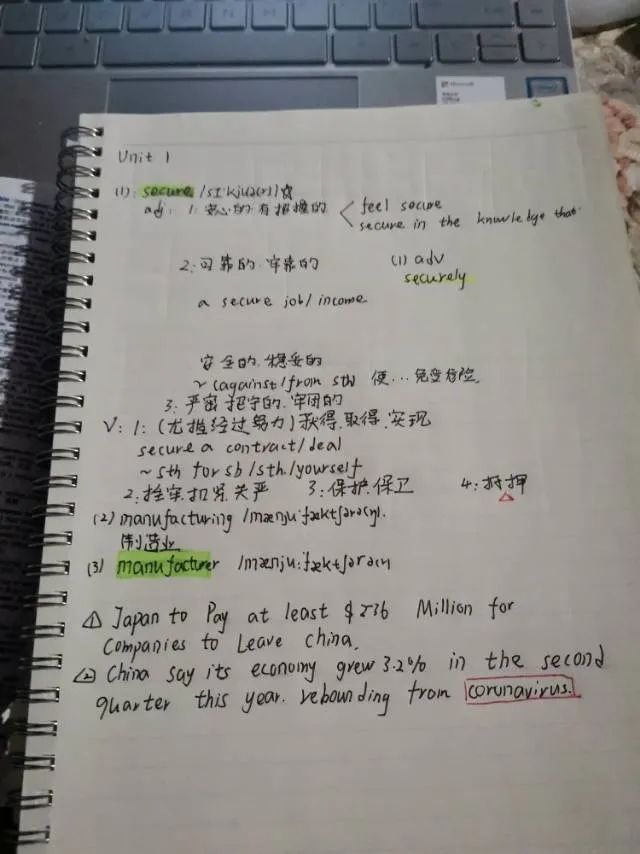 Unit 1
(1): secure /sɪ'kjʊə(r)/ ☆
adj: 1: 安心的.有把握的 < feel secure
secure in the knowledge that
2: 可靠的.牢靠的 (1) adv
securely
a secure job/income
安全的.稳妥的
~ (against/from sth) 使...免受危险.
3: 严密把守的.牢固的
V: 1: (尤指经过努力) 获得.取得.实现
secure a contract/deal
~ sth for sb/sth/yourself
2: 拴牢.扣紧.关严 3: 保护.保卫 4: 抵押
(2) manufacturing
制造业
(3) manufacturer
① Japan to Pay at least $ 536 Million for
Companies to Leave China.
② China say its economy grew 3.2% in the second
quarter this year. rebounding from coronavirus.